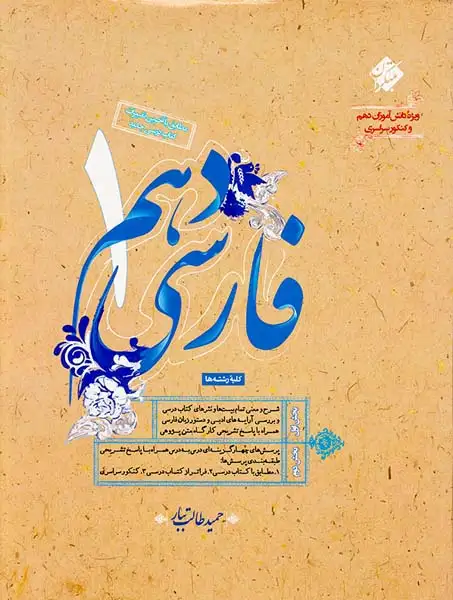 مبتکران
ویژهٔ دانش‌آموزان دهم
و کنکور سراسری
مطابق با آخرین تغییرات
کتاب درسی جدید
فارسی دهم ۱
کلیهٔ رشته‌ها
بخش اول
شرح و معنی تمام بیت‌ها و نثرهای کتاب درسی
و بررسی آرایه‌های ادبی و دستور زبان فارسی
همراه با پاسخ تشریحی کارگاه متن پژوهی
بخش دوم
پرسش‌های چهارگزینه‌ای درس به درس همراه با پاسخ تشریحی
طبقه‌بندی پرسش‌ها:
۱. مطابق با کتاب درسی ۲. فراتر از کتاب درسی ۳. کنکور سراسری
حمید طالب تبار